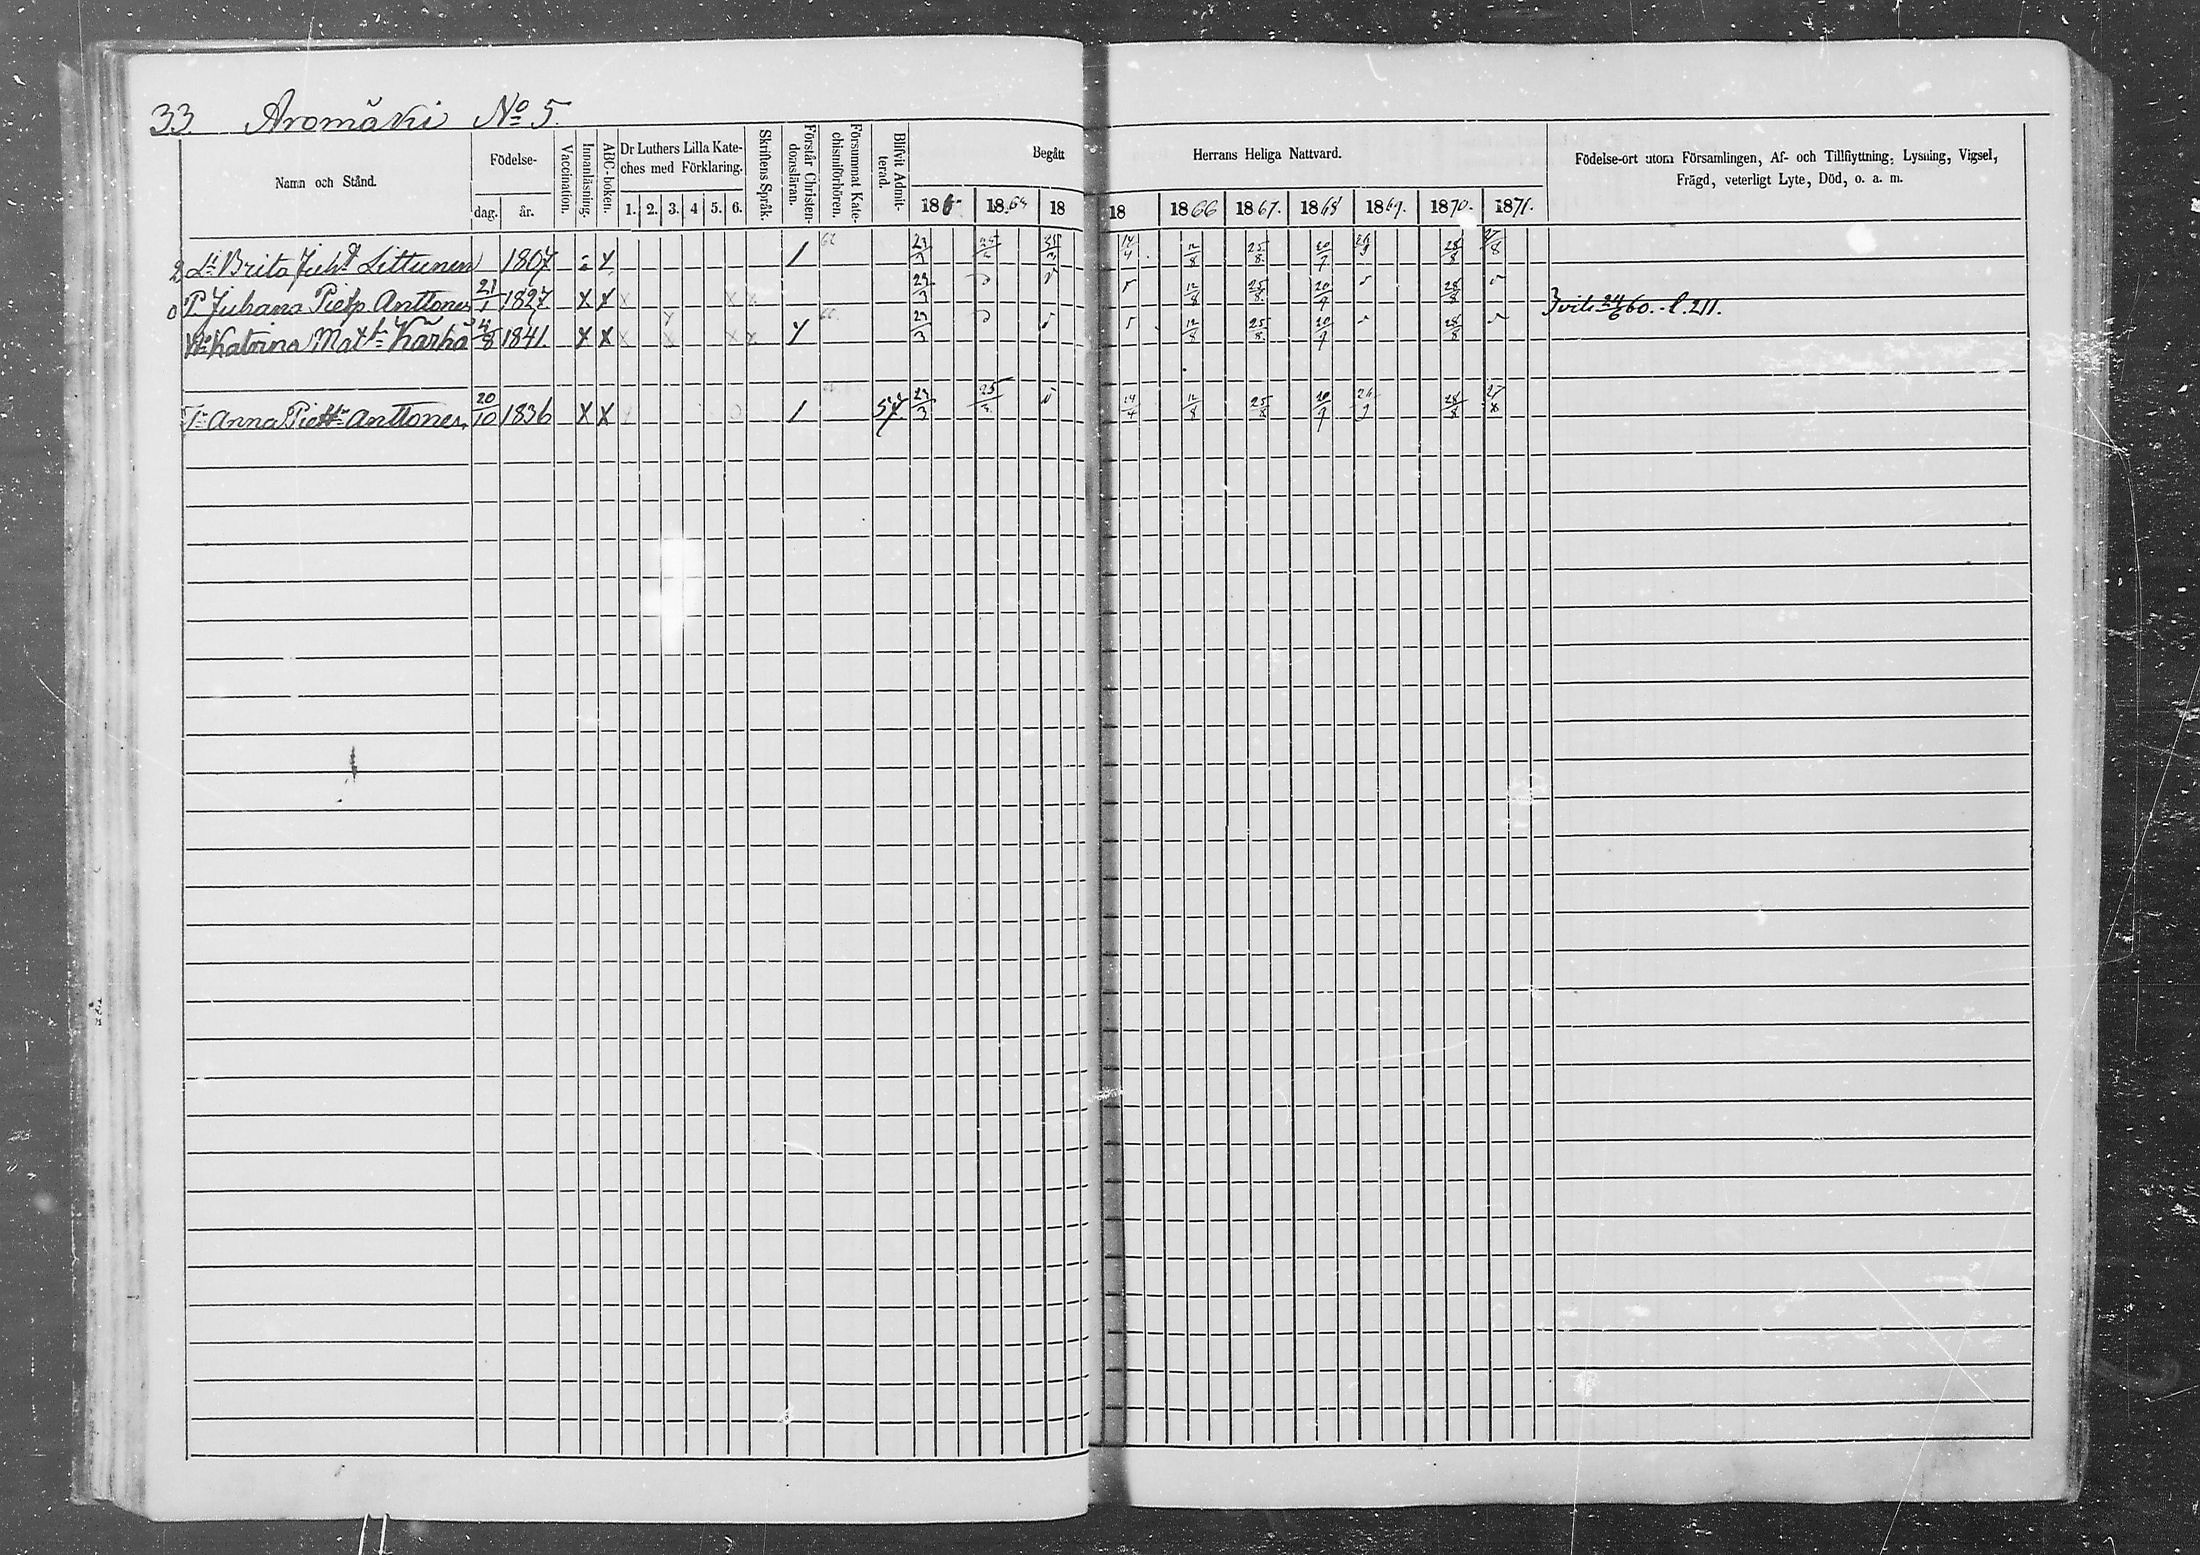 33 Aromäki No 5.
Namn och Stånd. Födelse- dag. år. Vaccination. Innanläsning. ABC-boken. Dr Luthers Lilla Kateches med Förklaring. 1. 2. 3. 4 5. 6. Skriftens Språk. Förstår Christendomsläran. Försummat Katechismiförhören. Blifvit Admitterad. Begått Herrans Heliga Nattvard. 18 18 18 1866 1867. 1868 1869. 1870. 1871. Födelse-ort utom Församlingen, Af- och Tillflyttning, Lysning, Vigsel, Frägd, veterligt Lyte, Död, o. a. m.
Brita Juhd Littunen 1807 12/8 25/8 20/9 28/8 27/8
Juhana Pietp Anttonen 21/1 1827 X 23/3 12/8 25/8. 20/9 28/8 24/6 60. l. 211.
Katrina Mattt Kärhä 4/8 1841. X X 23/3 12/8 25/8. 20/9 28/8
Anna Piettr Anttonen 20/10 1836 X X 57 23/3 25/3 14/4 12/8 25/8 20/9 28/8 27/8